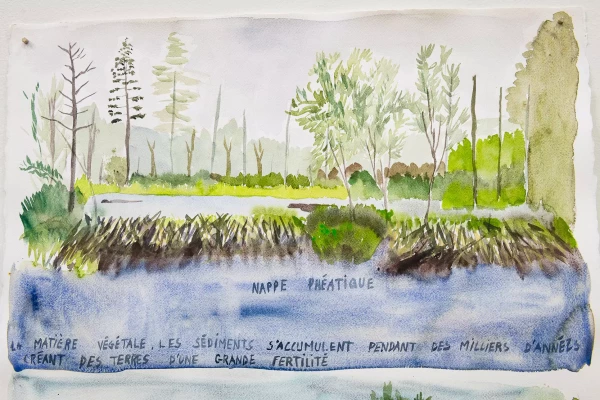 NAPPE PHÉATIQUE
LA MATIÈRE VÉGÉTALE, LES SÉDIMENTS S'ACCUMULENT PENDANT DES MILLIERS D'ANNÉES
CRÉANT DES TERRES D'UNE GRANDE FERTILITÉ